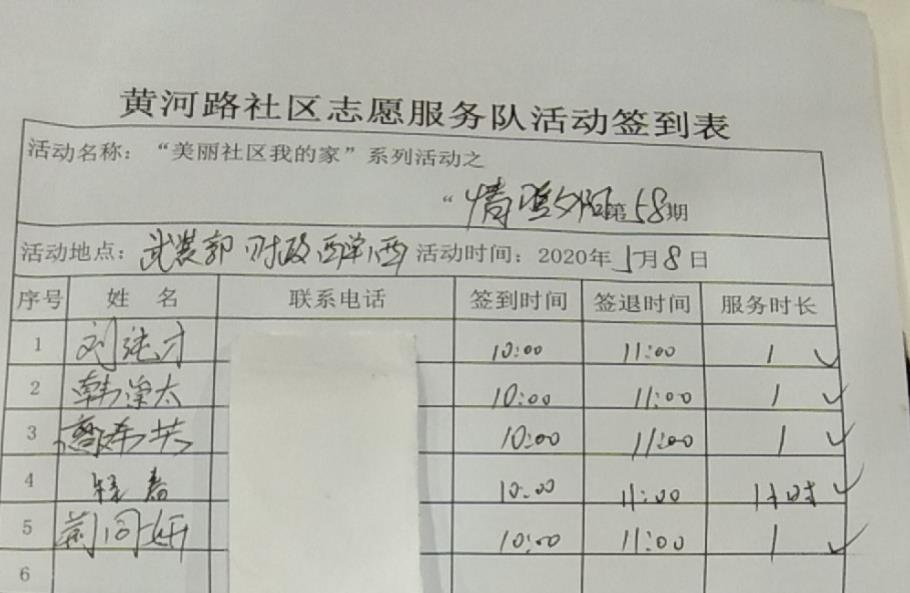 黄河路社区志愿服务队活动签到表
活动名称：“美丽社区我的家”系列活动之
“情暖夕阳第58期
活动地点：武装部 财政 活动时间：2020年5月8日
序号 姓 名 联系电话 签到时间 签退时间 服务时长
1 刘纯才 10:00 11:00 1 ✓
2 韩 太 10:00 11:00 1 ✓
3 10:00 11:00 1 ✓
4 春 10:00 11:00 1小时 ✓
5 荆问妍 10:00 11:00 1 ✓
6